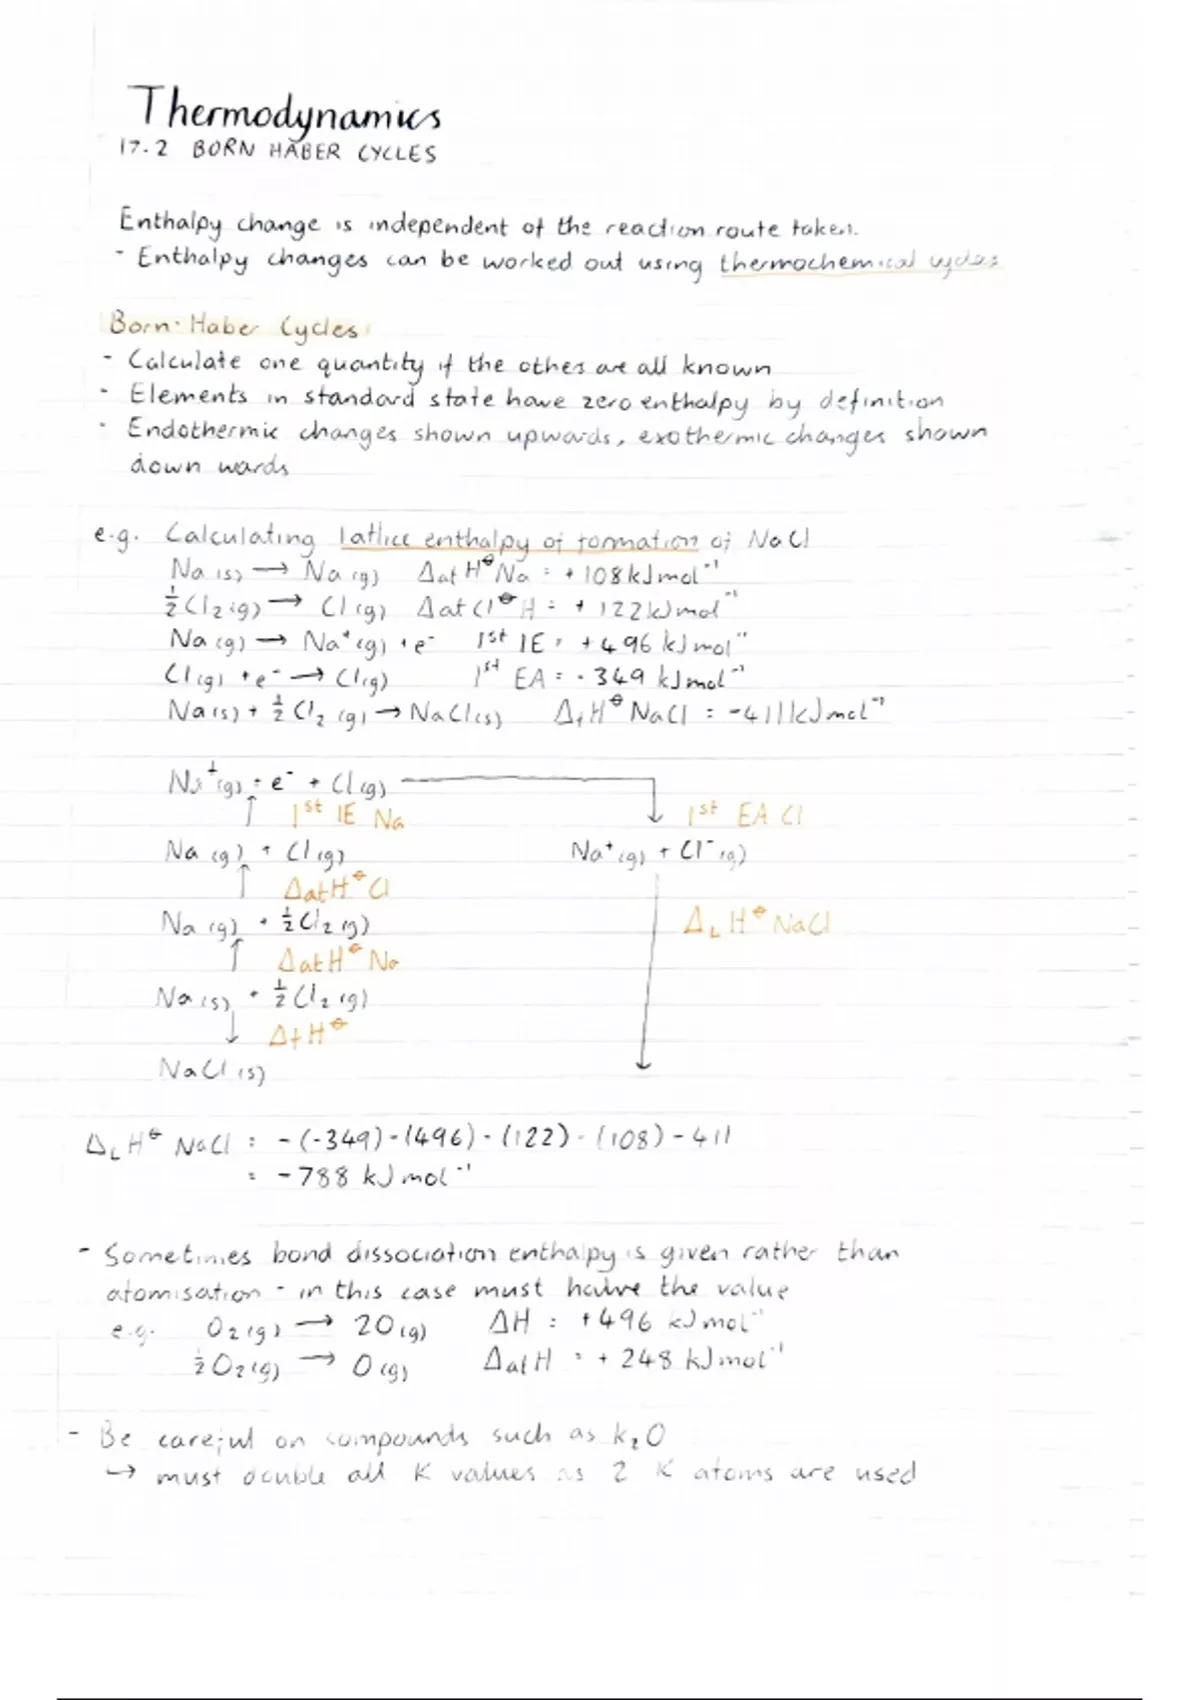 Thermodynamics
17.2 BORN HABER CYCLES
Enthalpy change is independent of the reaction route taken.
- Enthalpy changes can be worked out using thermochemical cycles
Born-Haber Cycles
- Calculate one quantity if the others are all known
- Elements in standard state have zero enthalpy by definition
- Endothermic changes shown upwards, exothermic changes shown
down wards
e.g. Calculating lattice enthalpy of formation of NaCl
Na (s) → Na (g) ΔatH⦵ Na = +108 kJ mol⁻¹
½Cl₂ (g) → Cl (g) Δat Cl⦵ H = +122 kJ mol⁻¹
Na (g) → Na⁺ (g) + e⁻ 1st IE = +496 kJ mol⁻¹
Cl (g) + e⁻ → Cl(g) 1st EA = -349 kJ mol⁻¹
Na (s) + ½Cl₂ (g) → NaCl (s) ΔfH⦵ NaCl = -411 kJ mol⁻¹
Na⁺(g) + e⁻ + Cl (g)
↑ 1st IE Na ↓ 1st EA Cl
Na (g) + Cl (g) Na⁺ (g) + Cl⁻ (g)
↑ ΔatH⦵ Cl
Na (g) + ½Cl₂ (g) ΔLH⦵ NaCl
↑ ΔatH⦵ Na
Na (s) + ½Cl₂ (g)
↓ ΔfH⦵
NaCl (s)
ΔLH⦵ NaCl = -(-349) - (496) - (122) - (108) - 411
= -788 kJ mol⁻¹
- Sometimes bond dissociation enthalpy is given rather than
atomisation - in this case must halve the value
e.g. O₂ (g) → 2O (g) ΔH = +496 kJ mol⁻¹
½O₂ (g) → O (g) ΔatH = +248 kJ mol⁻¹
- Be careful on compounds such as K₂O
↳ must double all K values as 2 K atoms are used